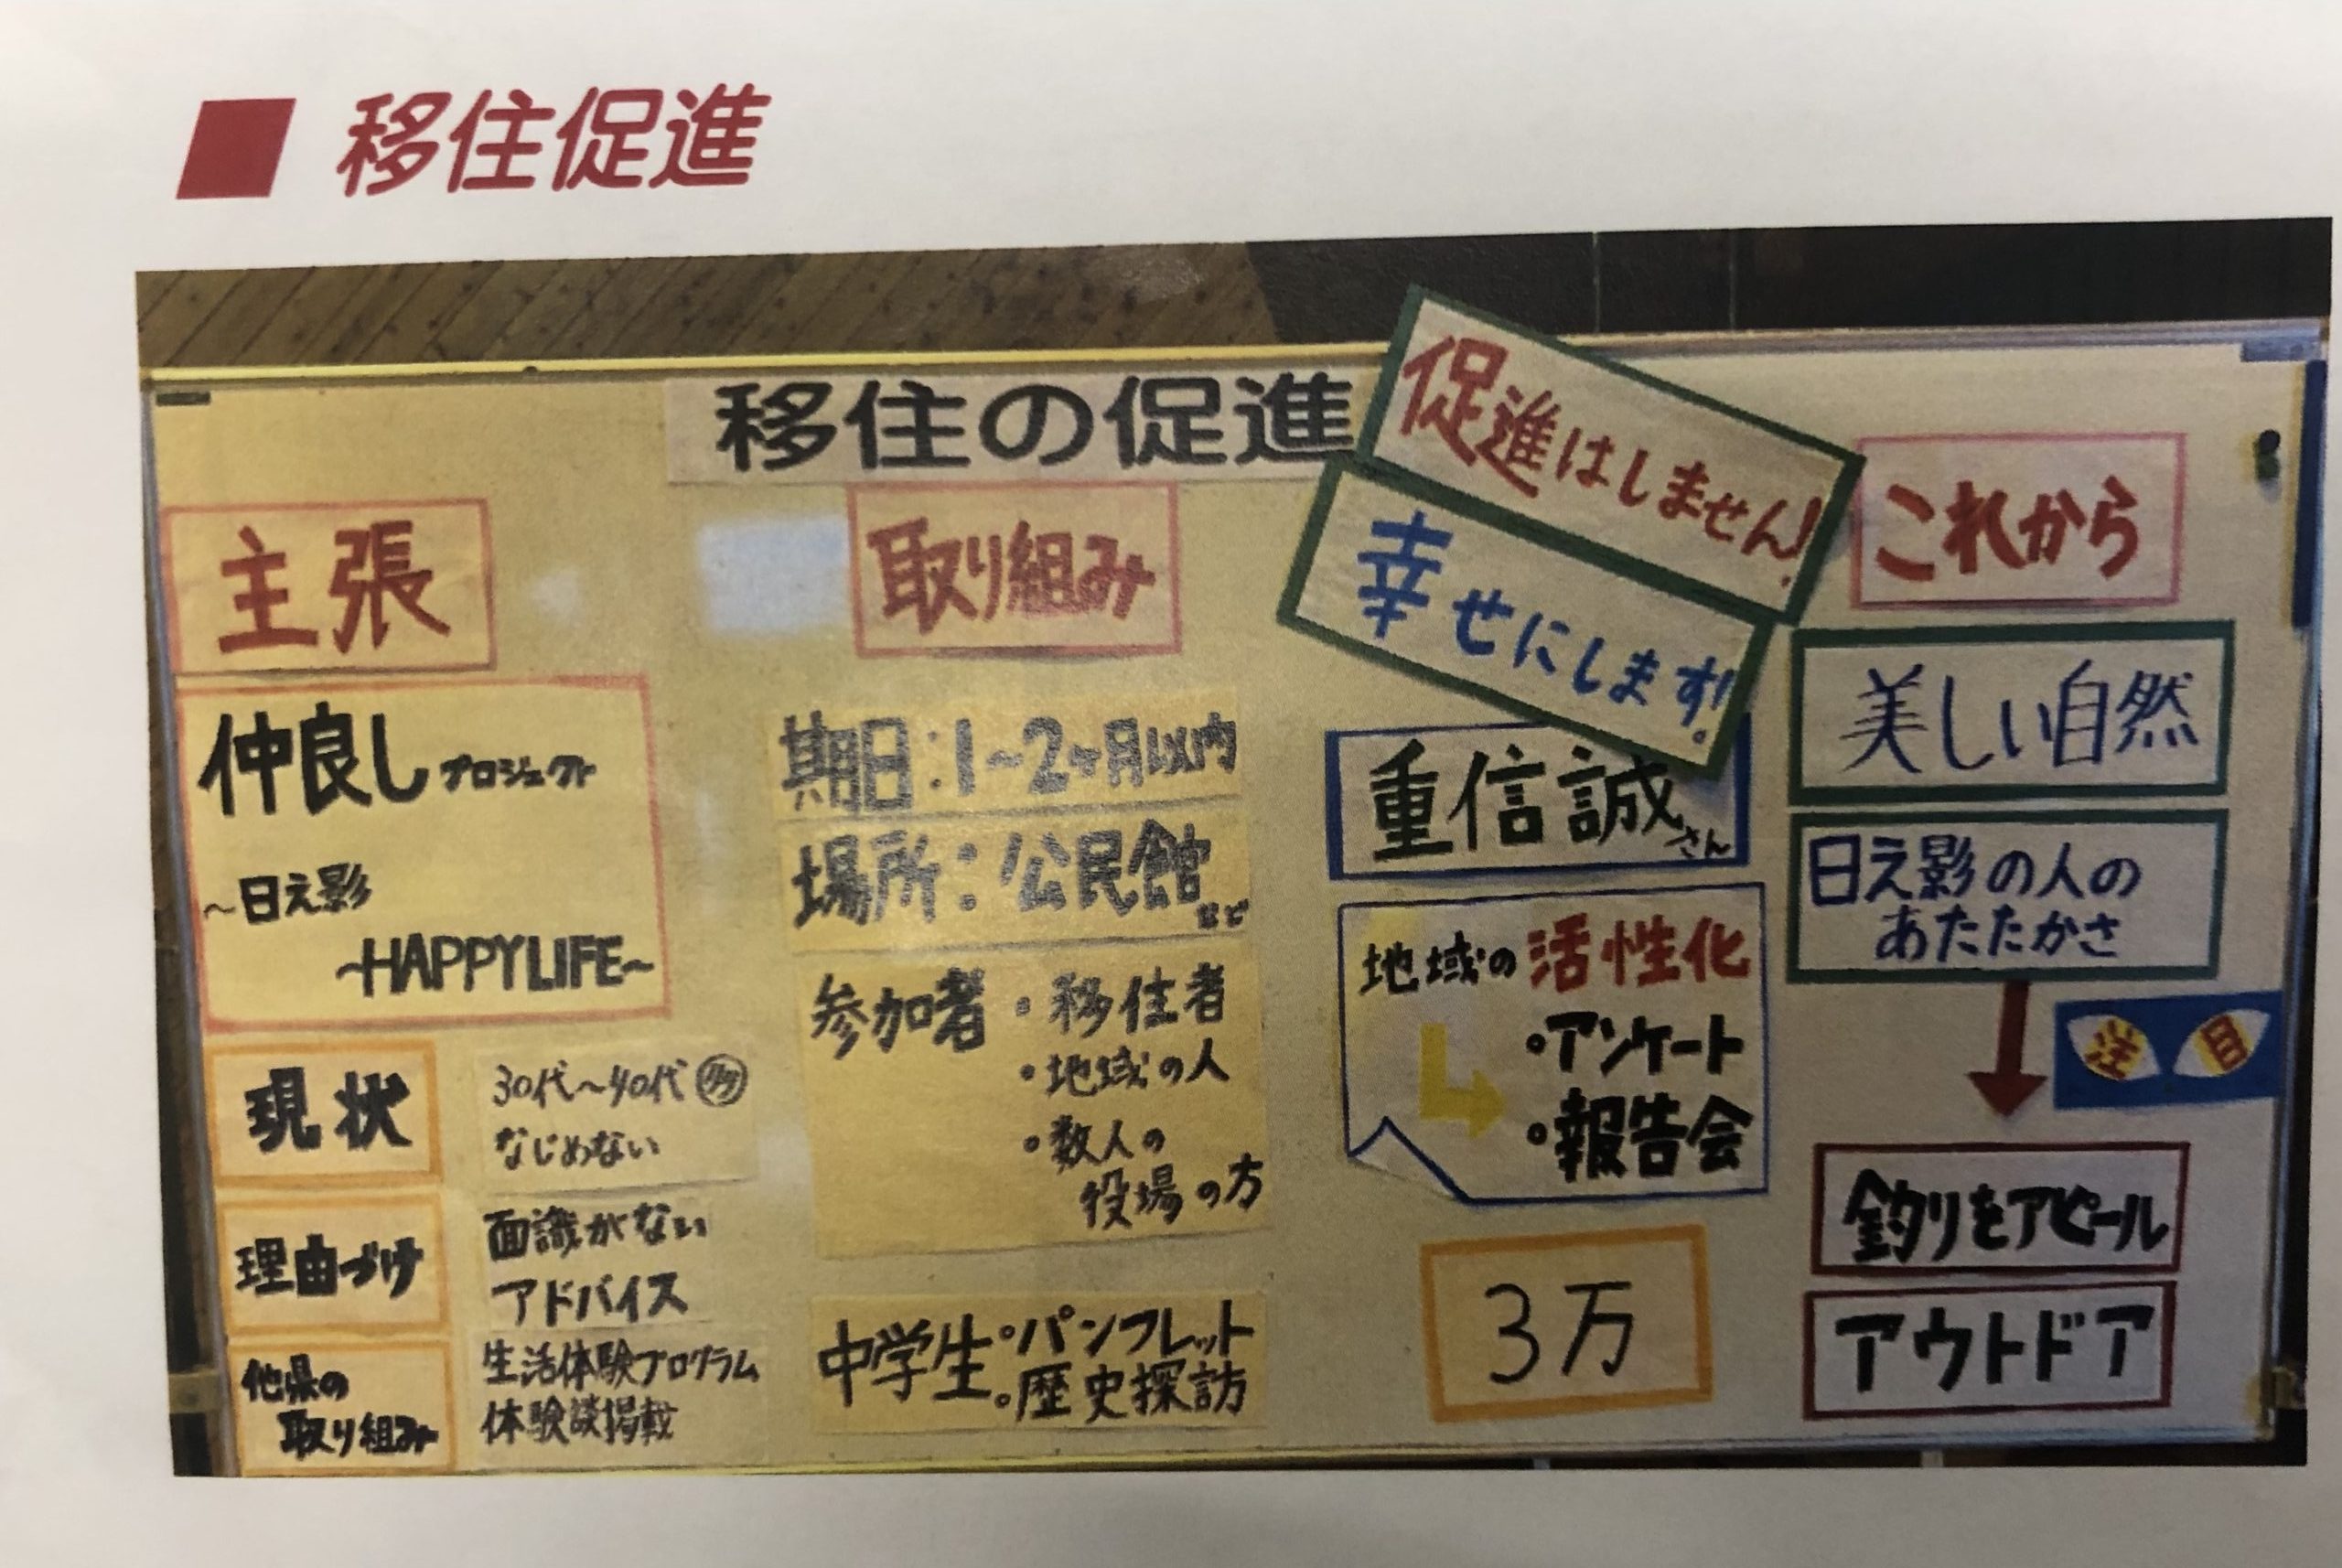 移住促進
移住の促進
促進はしません!
幸せにします!
主張
仲良しプロジェクト
~日え影
~HAPPY LIFE~
現状
30代~40代 多
なじめない
理由づけ
面識がない
アドバイス
他県の
取り組み
生活体験プログラム
体験談掲載
取り組み
期日:1~2ヶ月以内
場所:公民館など
参加者・移住者
・地域の人
・数人の
役場の方
中学生・パンフレット
・歴史探訪
重信誠さん
地域の活性化
・アンケート
・報告会
3万
これから
美しい自然
日え影の人の
あたたかさ
注目
釣りをアピール
アウトドア